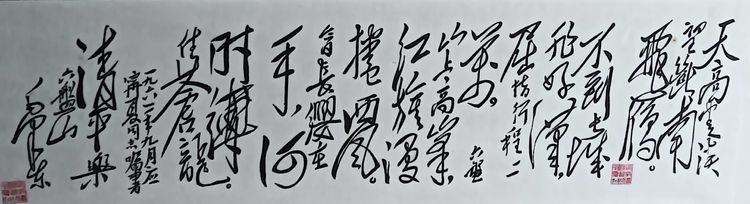 天高雲淡
望斷南
飛雁。
不到長城
非好漢，
屈指行程二
萬。六盤
山上高峯
紅旗漫
捲西風。
今日長纓在
手，何
時縛
住蒼龍。
一九六一年九月應
寧夏同志嘱書
清平樂
六盤山
毛澤東